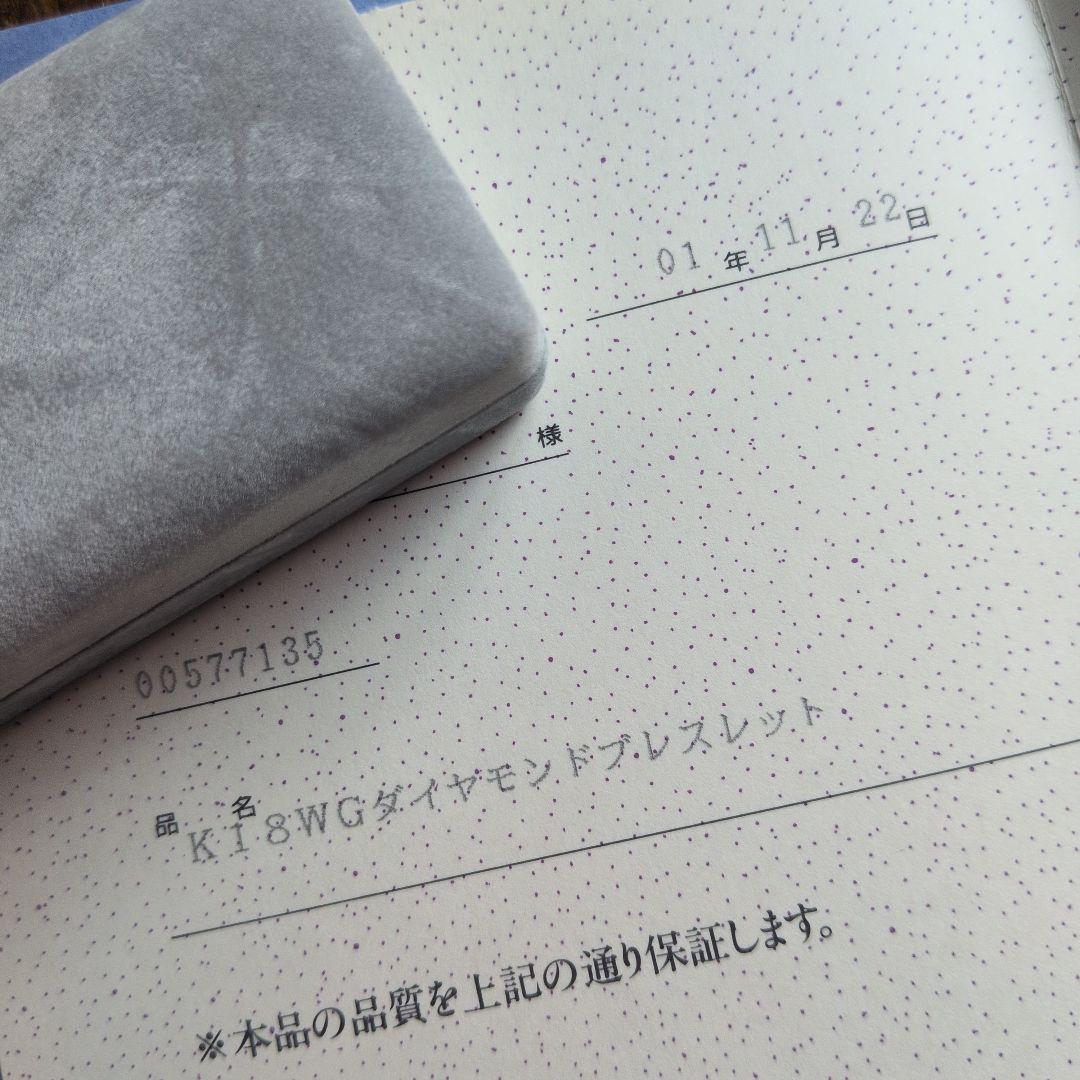 01年11月22日
様
00577135
品名
K18WGダイヤモンドブレスレット
※本品の品質を上記の通り保証します。